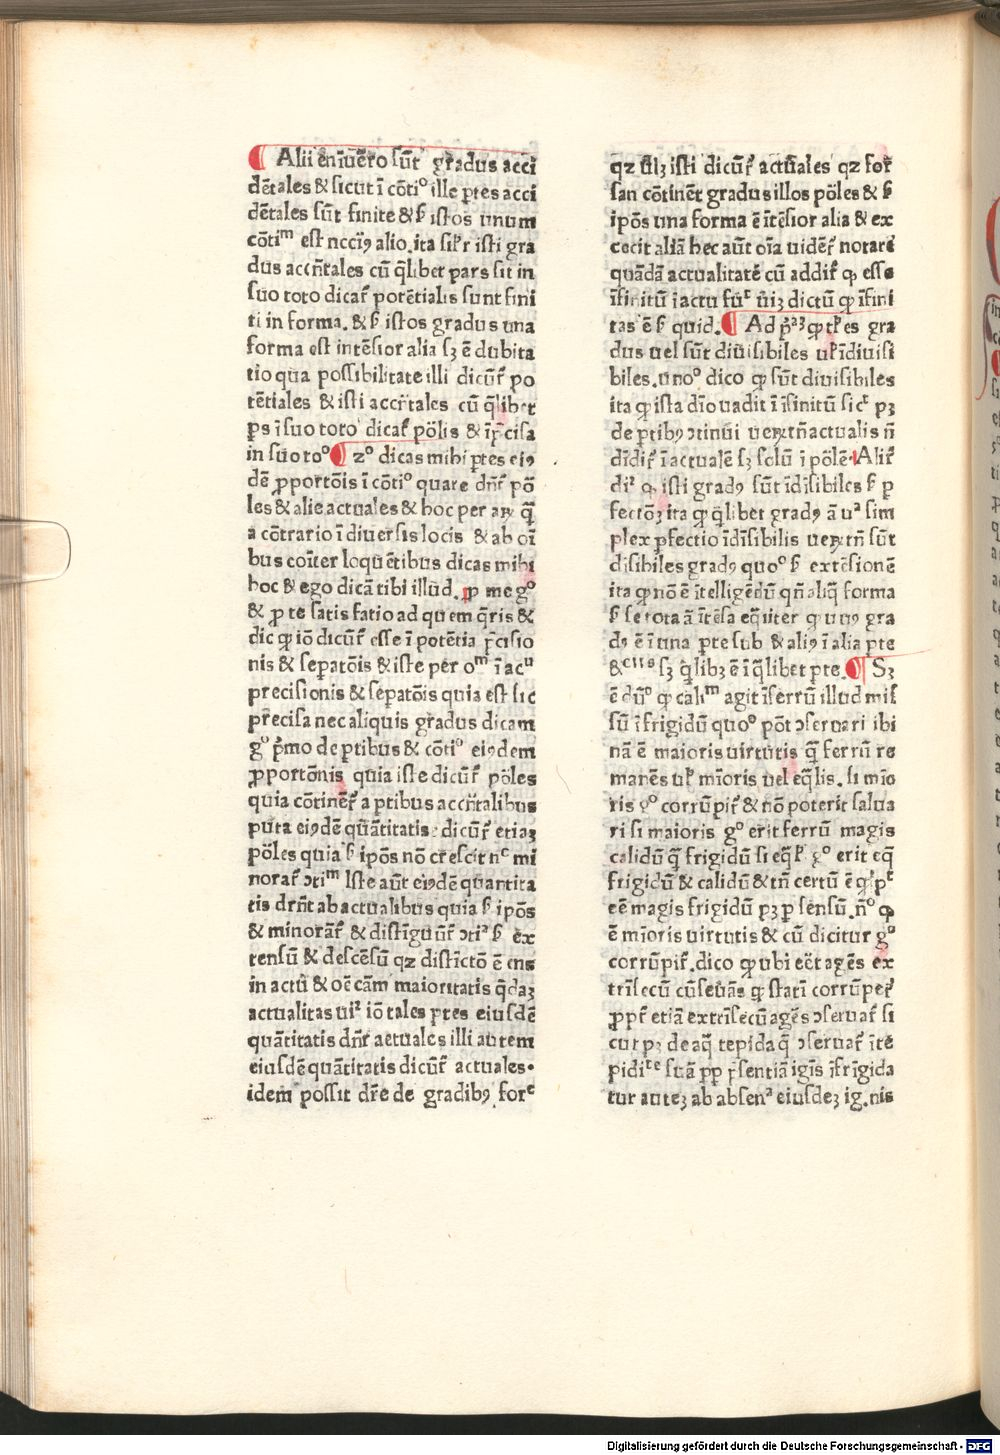 Alii eni̅ uero su̅t gradus acci
de̅tales & sicut i̅ co̅ti° ille p̲tes acci
de̅tales su̅t finite & ẜ istos unum
co̅tiᵐ est nccīꝰ alio. ita sil̅r isti gra
dus accn̅tales cu̅ q̅libet pars sit in
suo toto dicat̅ pote̅tialis sunt fini
ti in forma. & ẜ istos gradus una
forma est inte̅sior alia sꝫ e̅ dubita
tio qua possibilitate illi dicu̅t̅ po
te̅tiales & isti accn̅tales cu̅ q̅libet
ps i̅ suo toto dicat̅ po̅lis & i̅p̅cisa
in suo to° 2° dicas mihi p̲tes eiꝰ
de̅ ꝓporto̅is i̅ co̅ti° quare dn̅r̅ po̅
les & alie actuales & hoc per aꝝ q̅
a co̅trario i̅ diuersis locis & ab oi̅
bus coi̅ter loque̅tibus dicas mihi
hoc & ego dica̅ tibi illud. ꝓ me g°
& ꝓ te satis fatio ad quem q̅ris &
dic ꝙ io̅ dicu̅r̅ esse i̅ pote̅tia p̅cisio
nis & sep̲ato̅is & iste per oᵐ i̅ acᵘ
precisionis & sep̲ato̅is quia est sic
precisa nec aliquis gradus dicam
g° p̅mo de p̲tibus & co̅ti° eiꝰdem
ꝓporto̅nis quia iste dicu̅r̅ po̅les
quia co̅tine̅t̅ a p̲tibus accn̅talibus
puta eiꝰde̅ qua̅titatis: dicu̅r̅ etiaꝫ
po̅les quia ẜ ipo̅s no̅ crescit nᶜ mi
norat̅ ɔtiᵐ Iste aut̅ eiꝰde̅ quantita
tis drn̅t ab actualibus quia ẜ ipo̅s
& minora̅t̅ & disti̅gu̅r̅ ɔtiᵃ ẜ ex
tensu̅ & desce̅su̅ qꝫ disti̅cto̅ e̅ ens
in actu̅ & oe̅ ca̅m maioritatis q̅daꝫ
actualitas uiᶻ io̅ tales p̲tes eiusde̅
qua̅titatis dn̅r̅ actuales illi autem
eiusde̅ qua̅titatis dicu̅r̅ actuales.
idem possit dr̅e de gradibꝰ forᶜ
qꝫ ul̅ꝫ isti dicu̅r̅ actu̅ales qꝫ for̅
san co̅tine̅t gradus illos po̅les & ẜ
ipo̅s una forma e̅ i̅te̅sior alia & ex
cecit alia̅ hec aut̅ oi̅a uide̅r̅ notare
qua̅da̅ actualitate̅ cu̅ addit̅ ꝙ esse
i̅finitu̅ i̅ actu fuᶜ ui̅ꝫ dictu̅ ꝙ i̅fini
tas e̅ ẜ quid. Ad p̅ᵃꝫ ꝙ tl̅es gra
dus uel su̅t diuisibiles ul̅ i̅diuisi
biles. uno° dico ꝙ su̅t diuisibiles
ita ꝙ ista di̅o uadit i̅ i̅finitu̅ sicᵗ pꝫ
de p̲tibꝰ ɔtinui ueꝝtn̅ actualis n̅
di̅dit̅ i̅ actuale̅ sꝫ solu̅ i̅ po̅le̅. Alit̅
diᶻ ꝙ isti gradꝰ su̅t i̅di̅sibiles ẜ p̲
fecto̅ꝫ ita ꝙ q̅libet gradꝰ a̅ uᵃ sim
plex p̲fectio i̅di̅sibilis ueꝝtn̅ su̅t
disibiles gradꝰ quo° ẜ exte̅sione̅
ita ꝙ no̅ e̅ i̅tellige̅du̅ qn̅ aliq̅ forma
ẜ se tota a̅ i̅te̅sa eq̅liter ꝙ unꝰ gra
dꝰ e̅ i̅ una p̲te sub & aliꝰ i̅ alia p̲te
&ᶜⁱᵘˢ sꝫ q̅libꝫ e̅ i̅ q̅libet p̲te. Sꝫ
e̅ du̅° ꝙ caliᵐ agit i̅ ferru̅ illud mis
su̅ i̅ frigidu̅ quo° po̅t ɔseruari ibi
na̅ e̅ maioris uirtutis q̅ ferru̅ re
mane̅s ul̅ mi̅oris uel eq̅lis. si mi̅o
ris g° corru̅pit̅ & no̅ poterit salua
ri si maioris g° erit ferru̅ magis
calidu̅ q̅ frigidu̅ si eq̅l̅ g° erit eq̅
frigidu̅ & calidu̅ & tn̅ certu̅ e̅ ꝙ pᶜ
ee̅ magis frigidu̅ pꝫ p̲ sensu̅. n̅° ꝙ
e̅ mi̅oris uirtutis & cu̅ dicitur g°
corru̅pit̅. dico ꝙ ubi ee̅t age̅s ex
tri̅secu̅ cu̅seua̅s ꝙ stati̅ corru̅pet̅
ꝓpt̅ etia̅ extri̅secu̅ age̅s ɔseruat̅ si
cut pꝫ de aq̅ tepida q̅ ɔseruat̅ i̅te
pidiᵗᵉ sua̅ pp̅ p̅sentia̅ igi̅s i̅frigida
tur auteꝫ ab absenᵃ eiusdeꝫ ig.nis
Digitalisierung gefördert durch die Deutsche Forschungsgemeinschaft - DFG